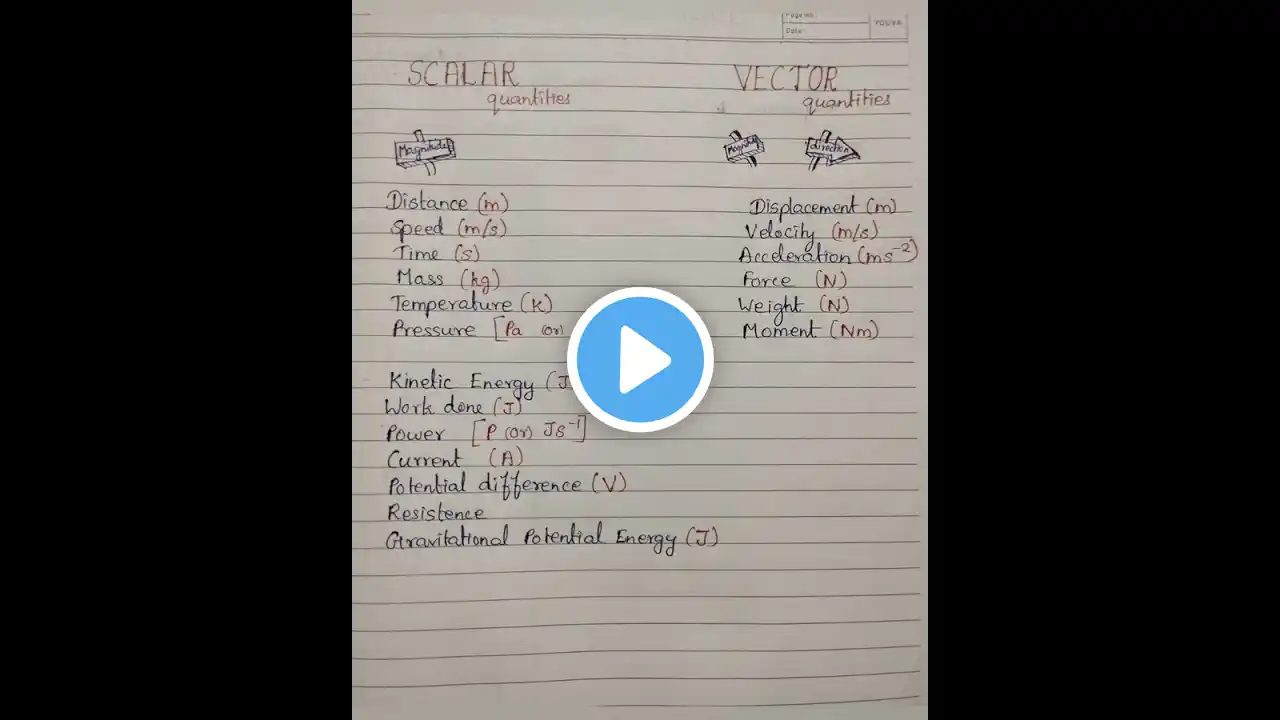 Page No.
Date
YOUVA
SCALAR
quantities
Magnitude
Distance (m)
Speed (m/s)
Time (s)
Mass (kg)
Temperature (K)
Pressure [Pa (or)
Kinetic Energy (J
Work done (J)
Power [P (or) Js⁻¹]
Current (A)
Potential difference (V)
Resistence
Gravitational Potential Energy (J)
VECTOR
quantities
direction
Displacement (m)
Velocity (m/s)
Acceleration (ms⁻²)
Force (N)
Weight (N)
Moment (Nm)